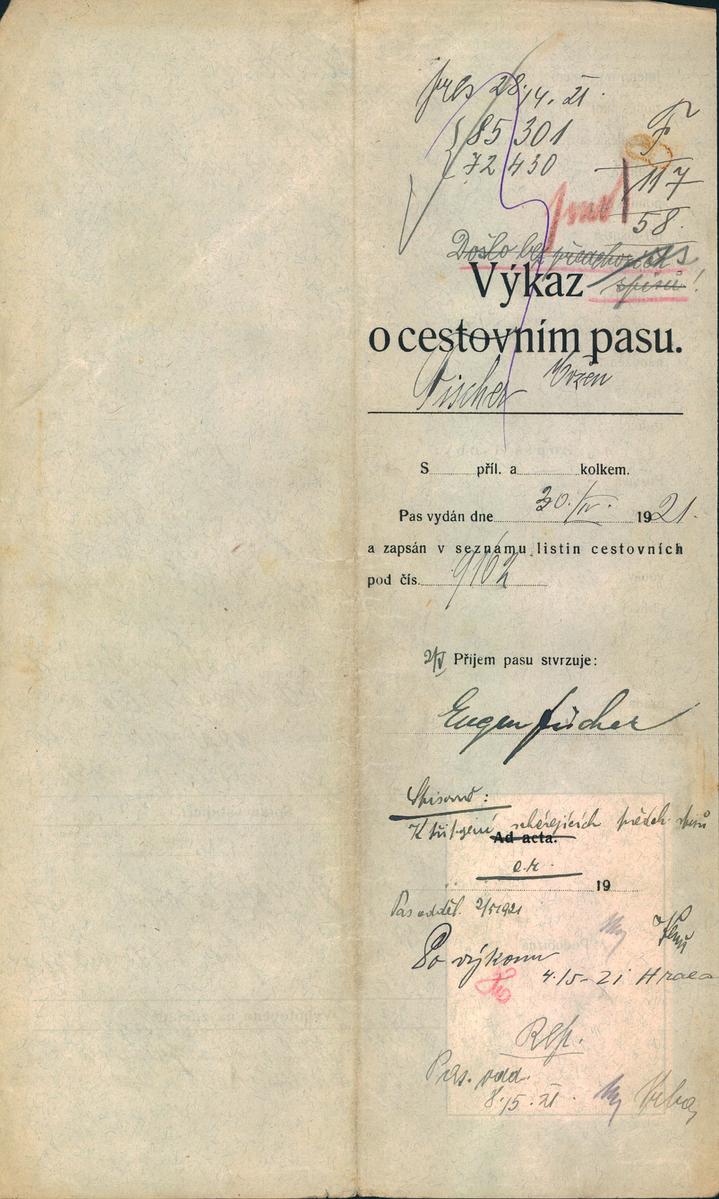 pres 28./4. 21.
85 301
72 430
F
117
58.
Došlo bez předchozích
spisů!
Výkaz
o cestovním pasu.
Fischer Evžen
S příl. a kolkem.
Pas vydán dne 30./IV. 1921.
a zapsán v seznámu listin cestovních
pod čís. 9162
2/V Příjem pasu stvrzuje:
Eugen Fischer
Spisovně:
scházejících předch. spisů
Ad acta.
a.r.
19
Pas odděl. 2/5 1921
Po výkonu
4./5 - 21
Rep.
Pas. odd.
8./5. 21.